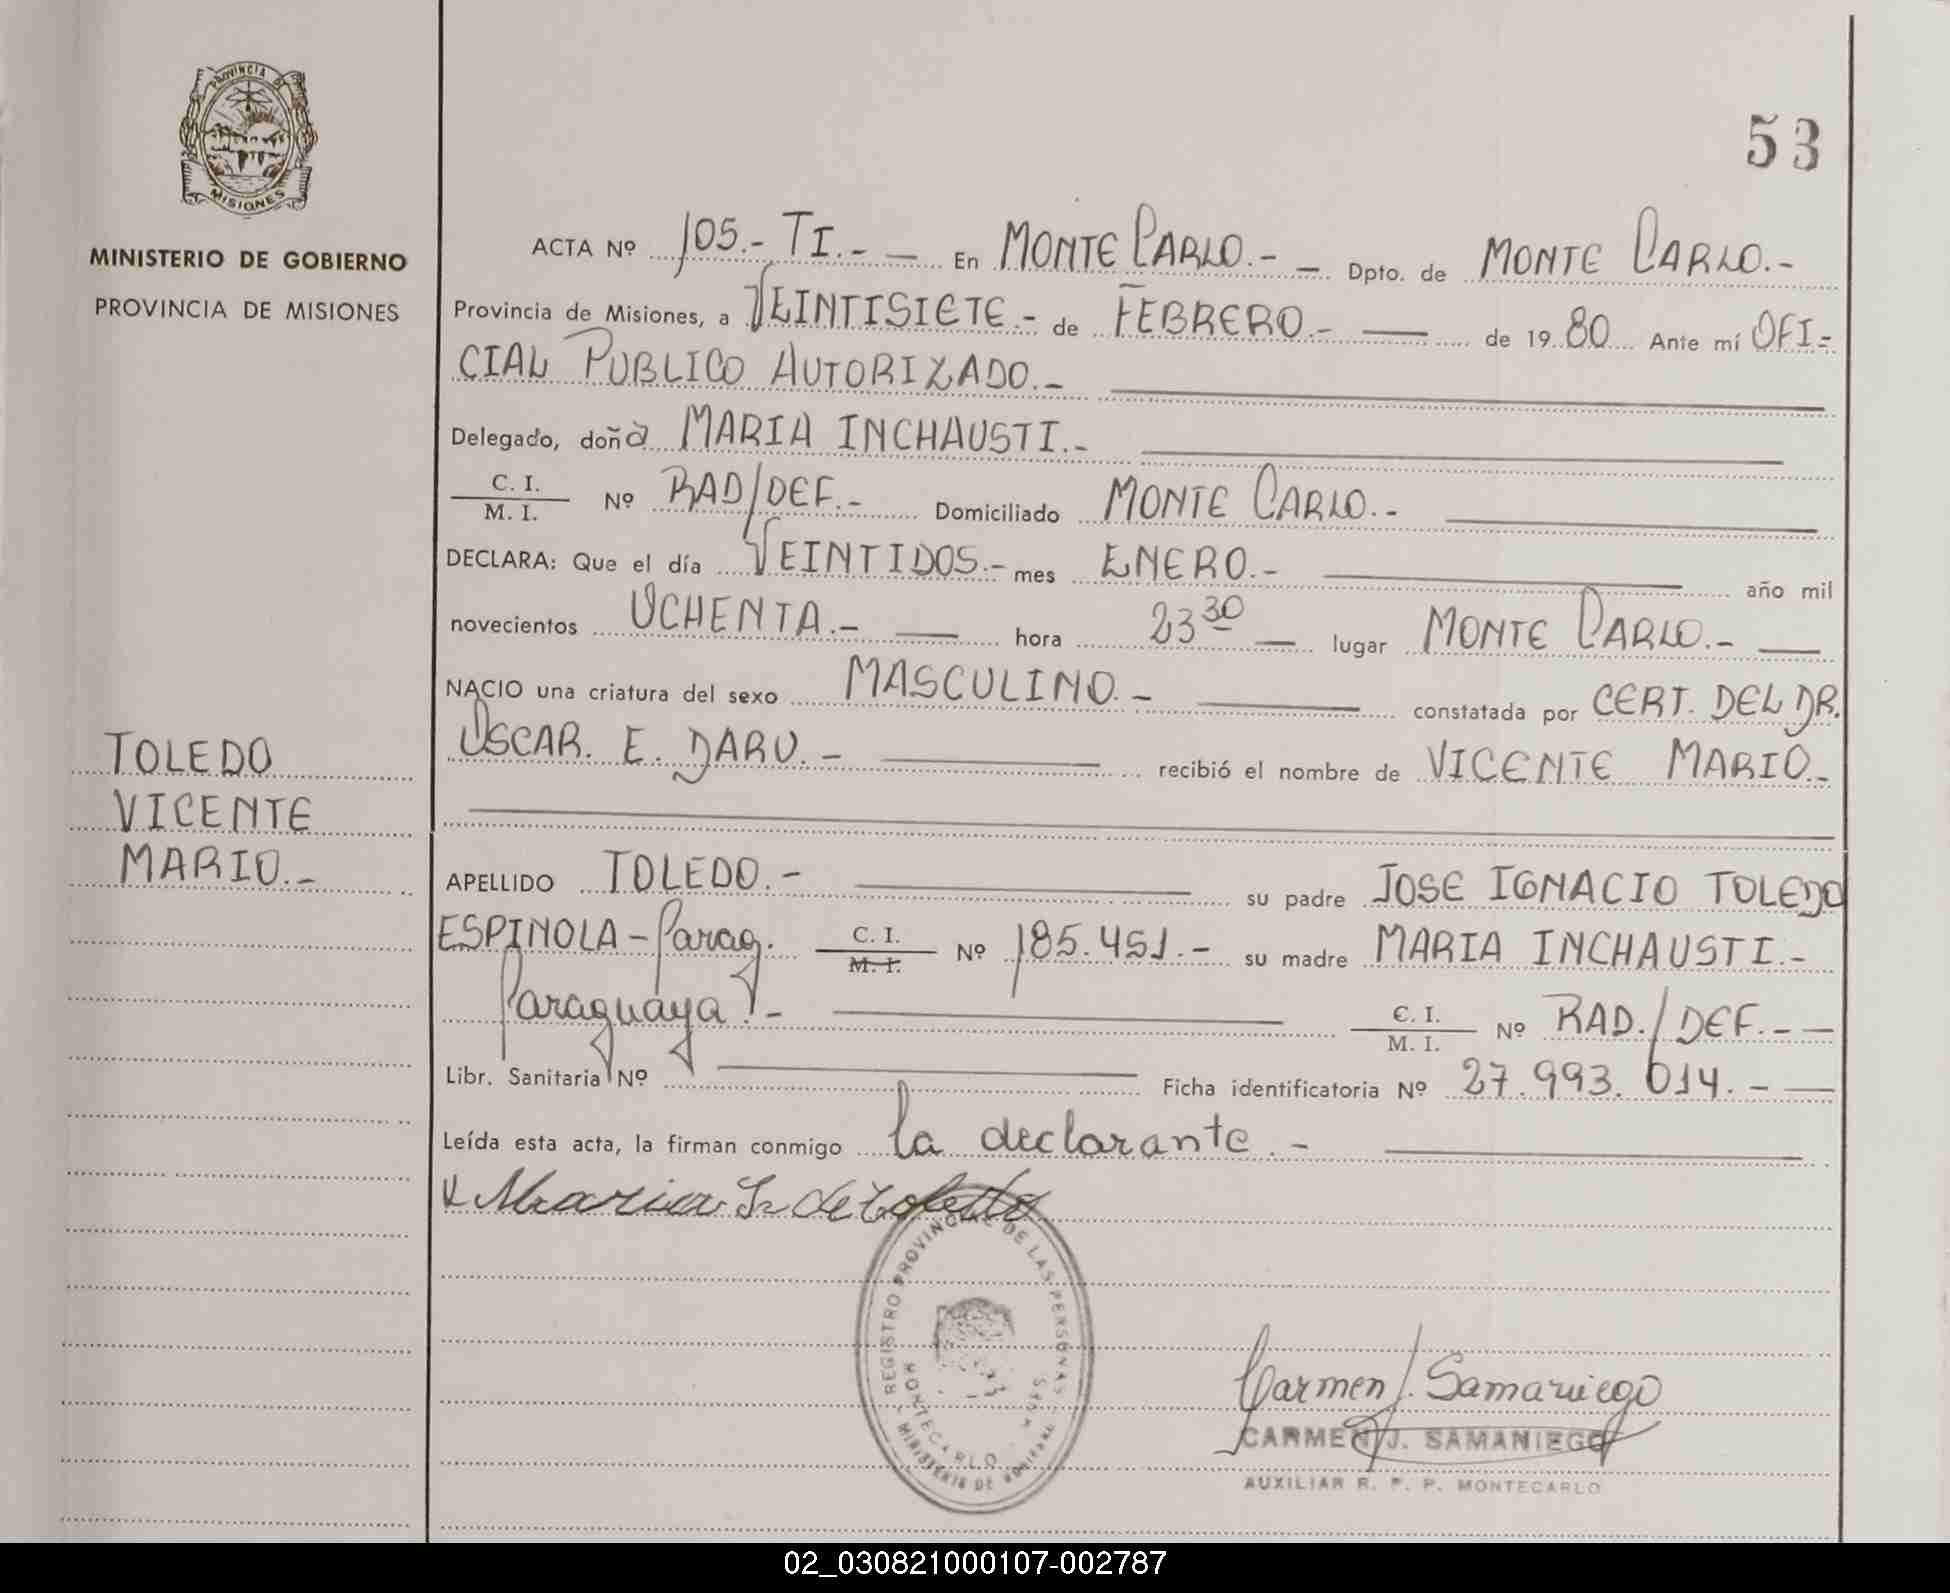 PROVINCIA DE
MISIONES
MINISTERIO DE GOBIERNO
PROVINCIA DE MISIONES
TOLEDO
VICENTE
MARIO.-
53
ACTA Nº 105.- TI.- — En MONTE CARLO.- — Dpto. de MONTE CARLO.-
Provincia de Misiones, a VEINTISIETE.- de FEBRERO.- — de 19 80 Ante mí OFI-
CIAL PUBLICO AUTORIZADO.-
Delegado, doña MARIA INCHAUSTI.-
C. I.
M. I.
Nº RAD/DEF.- Domiciliado MONTE CARLO.-
DECLARA: Que el día VEINTIDOS.- mes ENERO.- — año mil
novecientos OCHENTA.- — hora 23 30 — lugar MONTE CARLO.- —
NACIO una criatura del sexo MASCULINO.- — constatada por CERT. DEL DR.
OSCAR. E. DARU.- — recibió el nombre de VICENTE MARIO.-
APELLIDO TOLEDO.- — su padre JOSE IGNACIO TOLEDO
ESPINOLA - Parag. C. I. M. I. Nº 185.451.- su madre MARIA INCHAUSTI.-
Paraguaya.- — C. I. M. I. Nº RAD./DEF.- —
Libr. Sanitaria Nº — Ficha identificatoria Nº 27.993.014.- —
Leída esta acta, la firman conmigo la declarante.-
x Maria I. de Toledo
REGISTRO PROVINCIAL DE LAS PERSONAS
MONTECARLO
MINISTERIO DE
Carmen J. Samaniego
CARMEN J. SAMANIEGO
AUXILIAR R. P. P. MONTECARLO
02_030821000107-002787